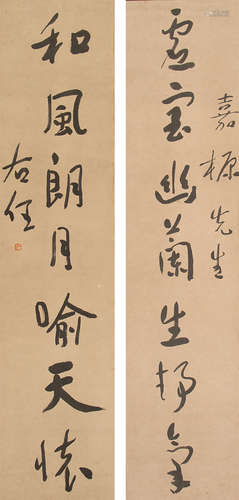 嘉榞先生
虛室幽蘭生靜氣
和風朗月喻天懷
右任